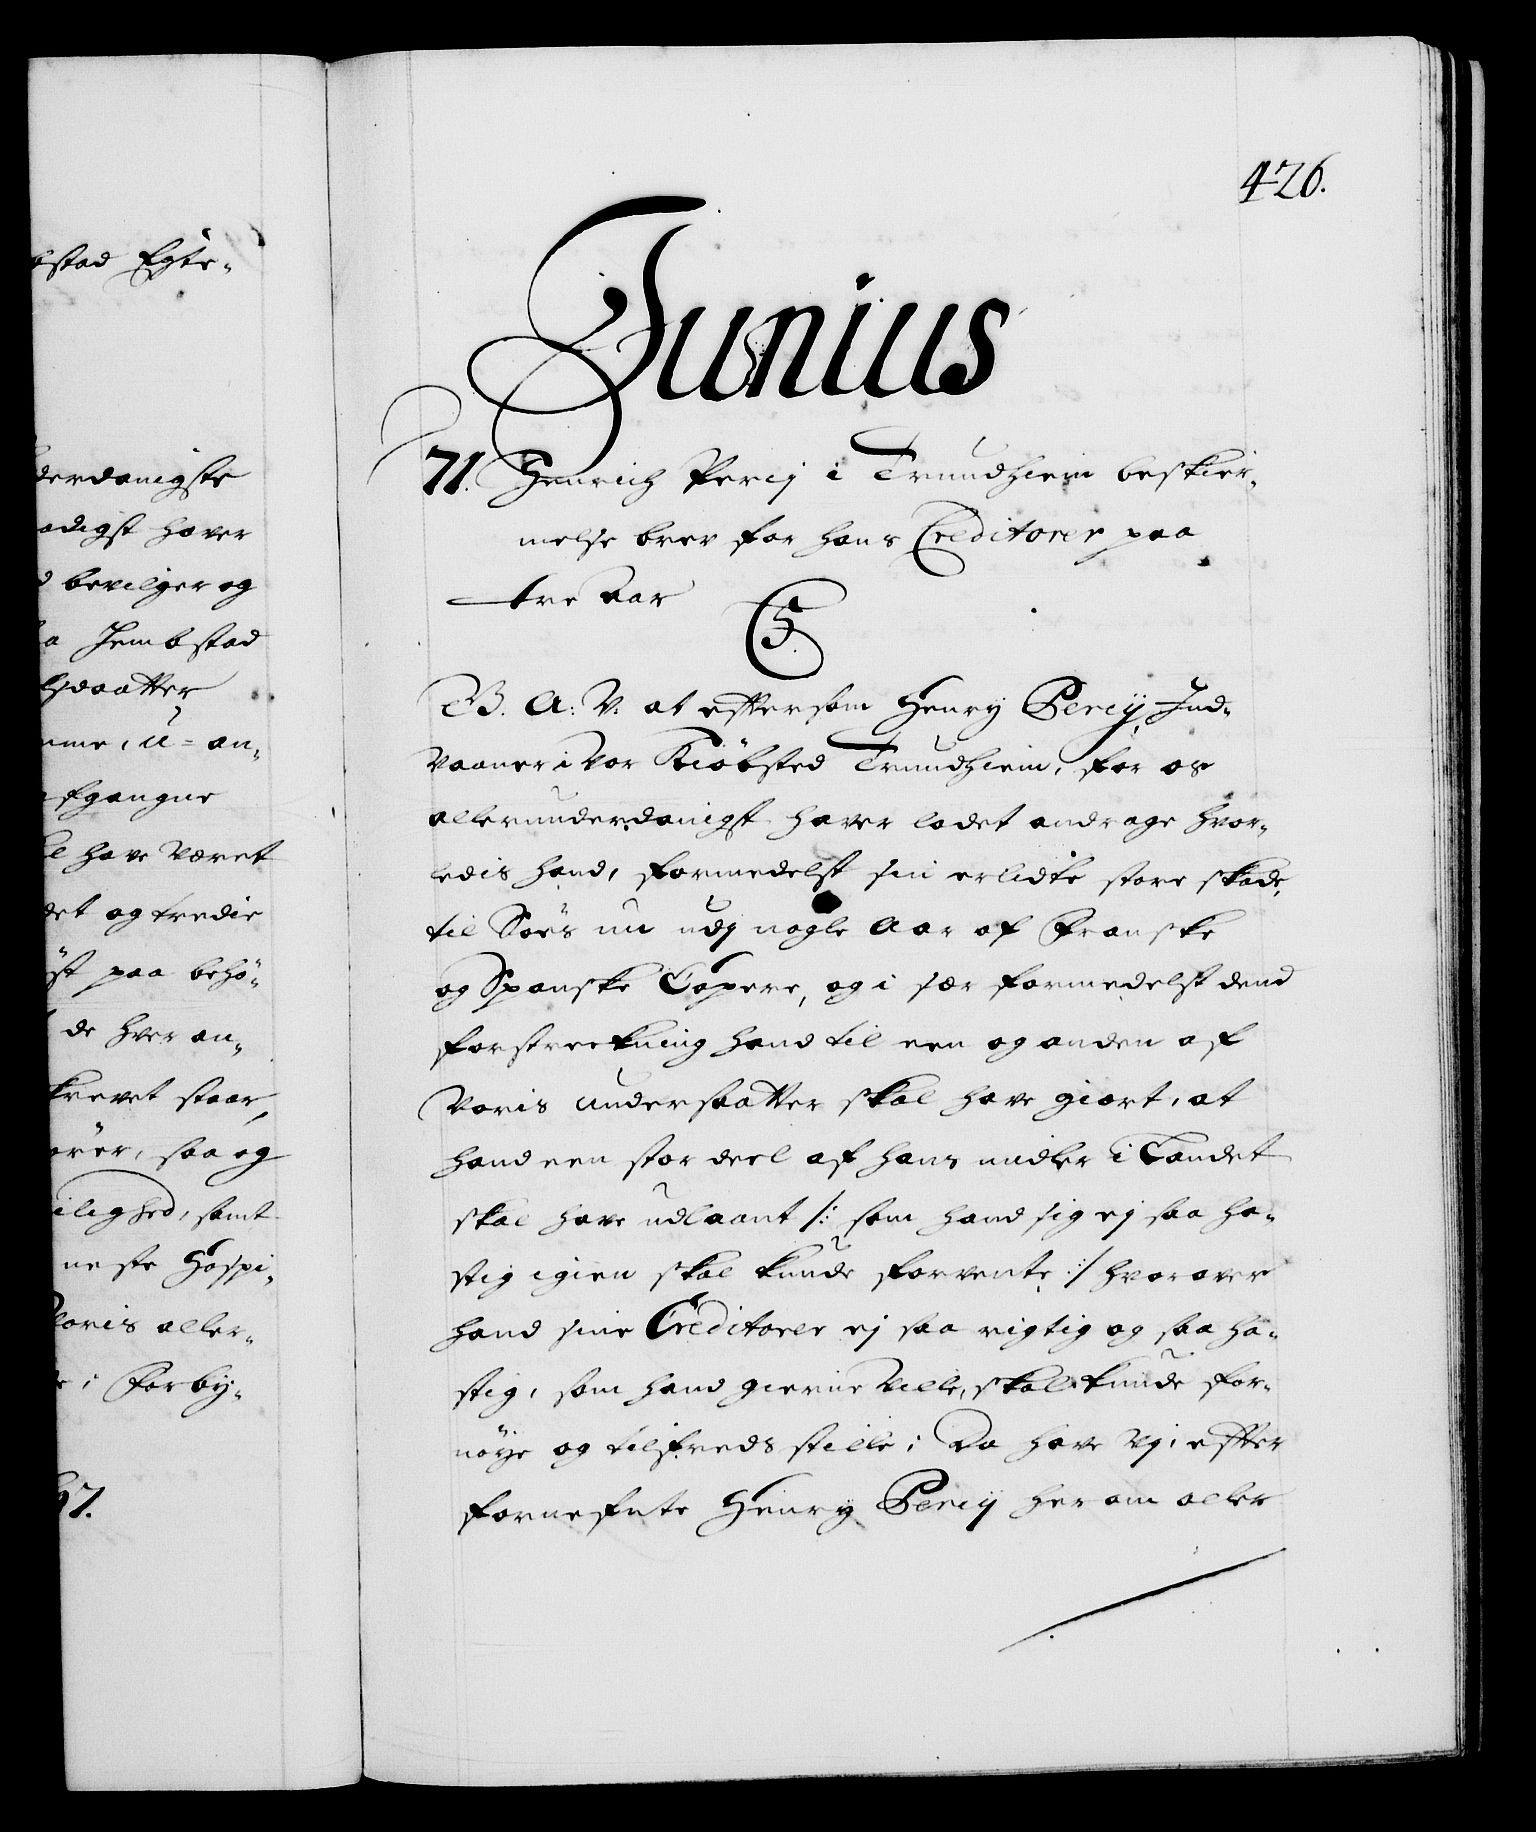 bstad Egte-
derdanigste
adigst haver
d bevilger og
a Jembstad
lsdaatter
mme, u-an-
fgangne
l have været
det og tredie
öst paa behö-
de hver an-
krevet staar,
orer, saa og
ilighed, samt
neste Hospi-
Voris aller-
i Forby-
97.
426.
Junius
71. Henrich Percij i Trundhiem beskier-
melse brev for hans Creditorer paa
tre Aar
C5.
B. A: V: at effter som Henry Percÿ Ind-
vaaner i vor Kiöbsted Trundhiem, for os
allerunderdanigst haver ladet andrage hvor-
ledis hand, formedelst sin erlidte store skade,
til Söes nu udj nogle Aar af Franske
og Spanske Capere, og i sær formedelst dend
forstreckning hand til een og anden af
Voris undersaatter skal have giort, at
hand een stor deel af hans midler i Landet
skal have udlaant /: som hand sig ej saa ha-
stig igien skal kunde forvente :/ hvor over
hand sine Creditorer ej saa rigtig og saa ha-
stig, som hand gierne ville, skal kunde for-
nöÿe og tilfreds stille; Da have Vj, effter
fornefnte Henry Percÿ her om aller